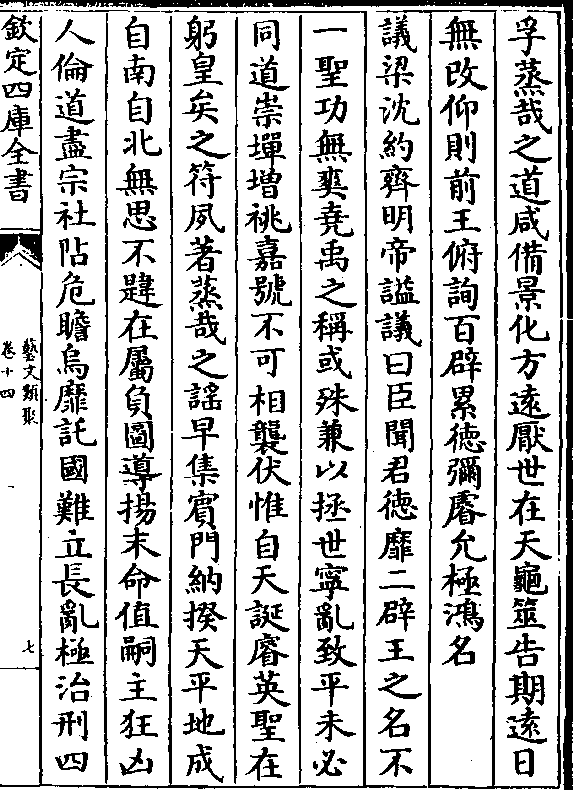 孚蒸哉之道咸備景化方遠厭世在天龜筮告期遠日
無改仰則前王俯詢百辟累德彌㫪允極鴻名
議梁沈約齊明帝謚議曰臣聞君德靡二辟王之名不
一聖功無爽堯禹之稱或殊兼以拯世寧亂致平未必
同道崇墠增祧嘉號不可相襲伏惟自天誕睿英聖在
躬皇矣之符夙著蒸哉之謡早集賓門納揆天平地成
自南自北無思不韙在屬負圖導揚末命值嗣主狂凶
人倫道盡宗社阽危瞻烏靡託國難立長亂極治刑四
欽定四庫全書
藝文類聚
卷十四
七